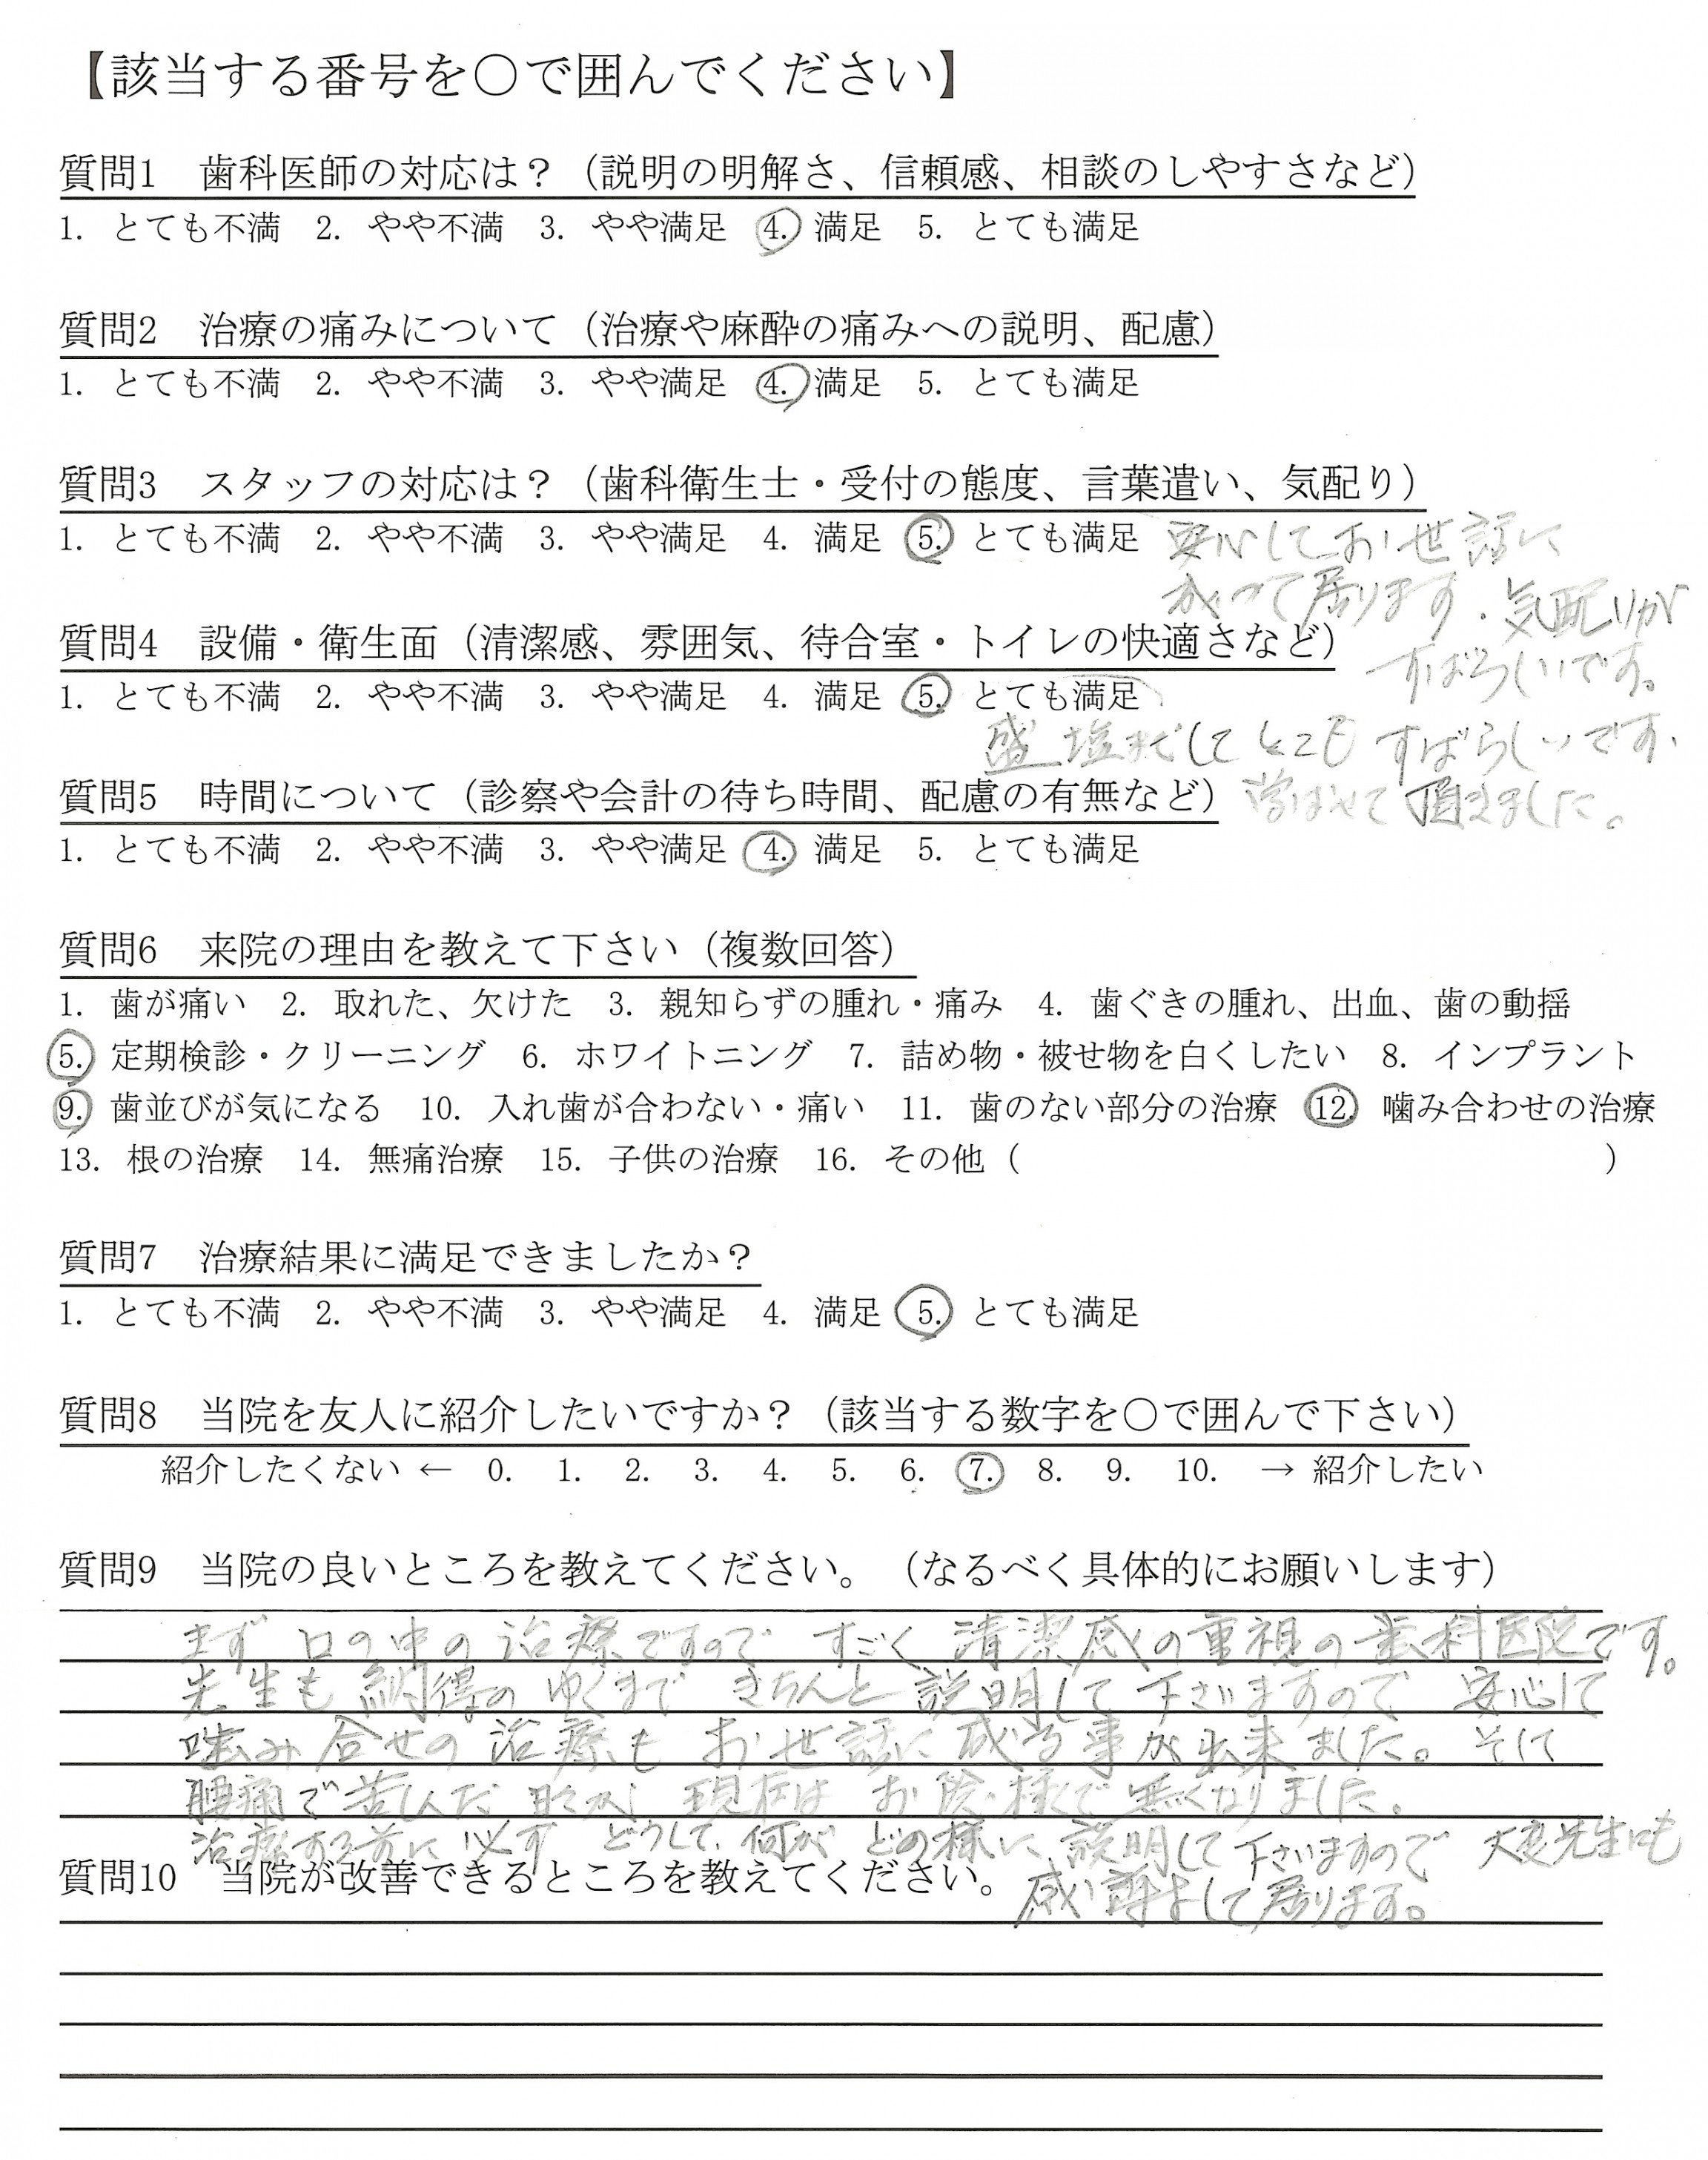 【該当する番号を○で囲んでください】
質問1　歯科医師の対応は？（説明の明解さ、信頼感、相談のしやすさなど）
1. とても不満　2. やや不満　3. やや満足　4. 満足　5. とても満足
質問2　治療の痛みについて（治療や麻酔の痛みへの説明、配慮）
1. とても不満　2. やや不満　3. やや満足　4. 満足　5. とても満足
質問3　スタッフの対応は？（歯科衛生士・受付の態度、言葉遣い、気配り）
1. とても不満　2. やや不満　3. やや満足　4. 満足　5. とても満足
安心してお世話に
成って居ります．気配りが
すばらしいです。
質問4　設備・衛生面（清潔感、雰囲気、待合室・トイレの快適さなど）
1. とても不満　2. やや不満　3. やや満足　4. 満足　5. とても満足
盛塩までして とても すばらしいです.
学ばせて頂きました。
質問5　時間について（診察や会計の待ち時間、配慮の有無など）
1. とても不満　2. やや不満　3. やや満足　4. 満足　5. とても満足
質問6　来院の理由を教えて下さい（複数回答）
1. 歯が痛い　2. 取れた、欠けた　3. 親知らずの腫れ・痛み　4. 歯ぐきの腫れ、出血、歯の動揺
5. 定期検診・クリーニング　6. ホワイトニング　7. 詰め物・被せ物を白くしたい　8. インプラント
9. 歯並びが気になる　10. 入れ歯が合わない・痛い　11. 歯のない部分の治療　12. 噛み合わせの治療
13. 根の治療　14. 無痛治療　15. 子供の治療　16. その他（　　　）
質問7　治療結果に満足できましたか？
1. とても不満　2. やや不満　3. やや満足　4. 満足　5. とても満足
質問8　当院を友人に紹介したいですか？（該当する数字を○で囲んで下さい）
紹介したくない ← 0. 1. 2. 3. 4. 5. 6. 7. 8. 9. 10. → 紹介したい
質問9　当院の良いところを教えてください。（なるべく具体的にお願いします）
まず 口の中の 治療ですので すごく 清潔感の重視の歯科医院です。
先生も 納得の ゆくまで きちんと 説明して 下さいますので 安心して
噛み合せの 治療も お世話に 成る事が出来ました。そして
腰痛で苦しんだ 日々が 現在は お陰様で 無くなりました。
治療する前に 必ず どうして、何が どの様に 説明して下さいますので 大変先生にも
感謝して居ります。
質問10　当院が改善できるところを教えてください。